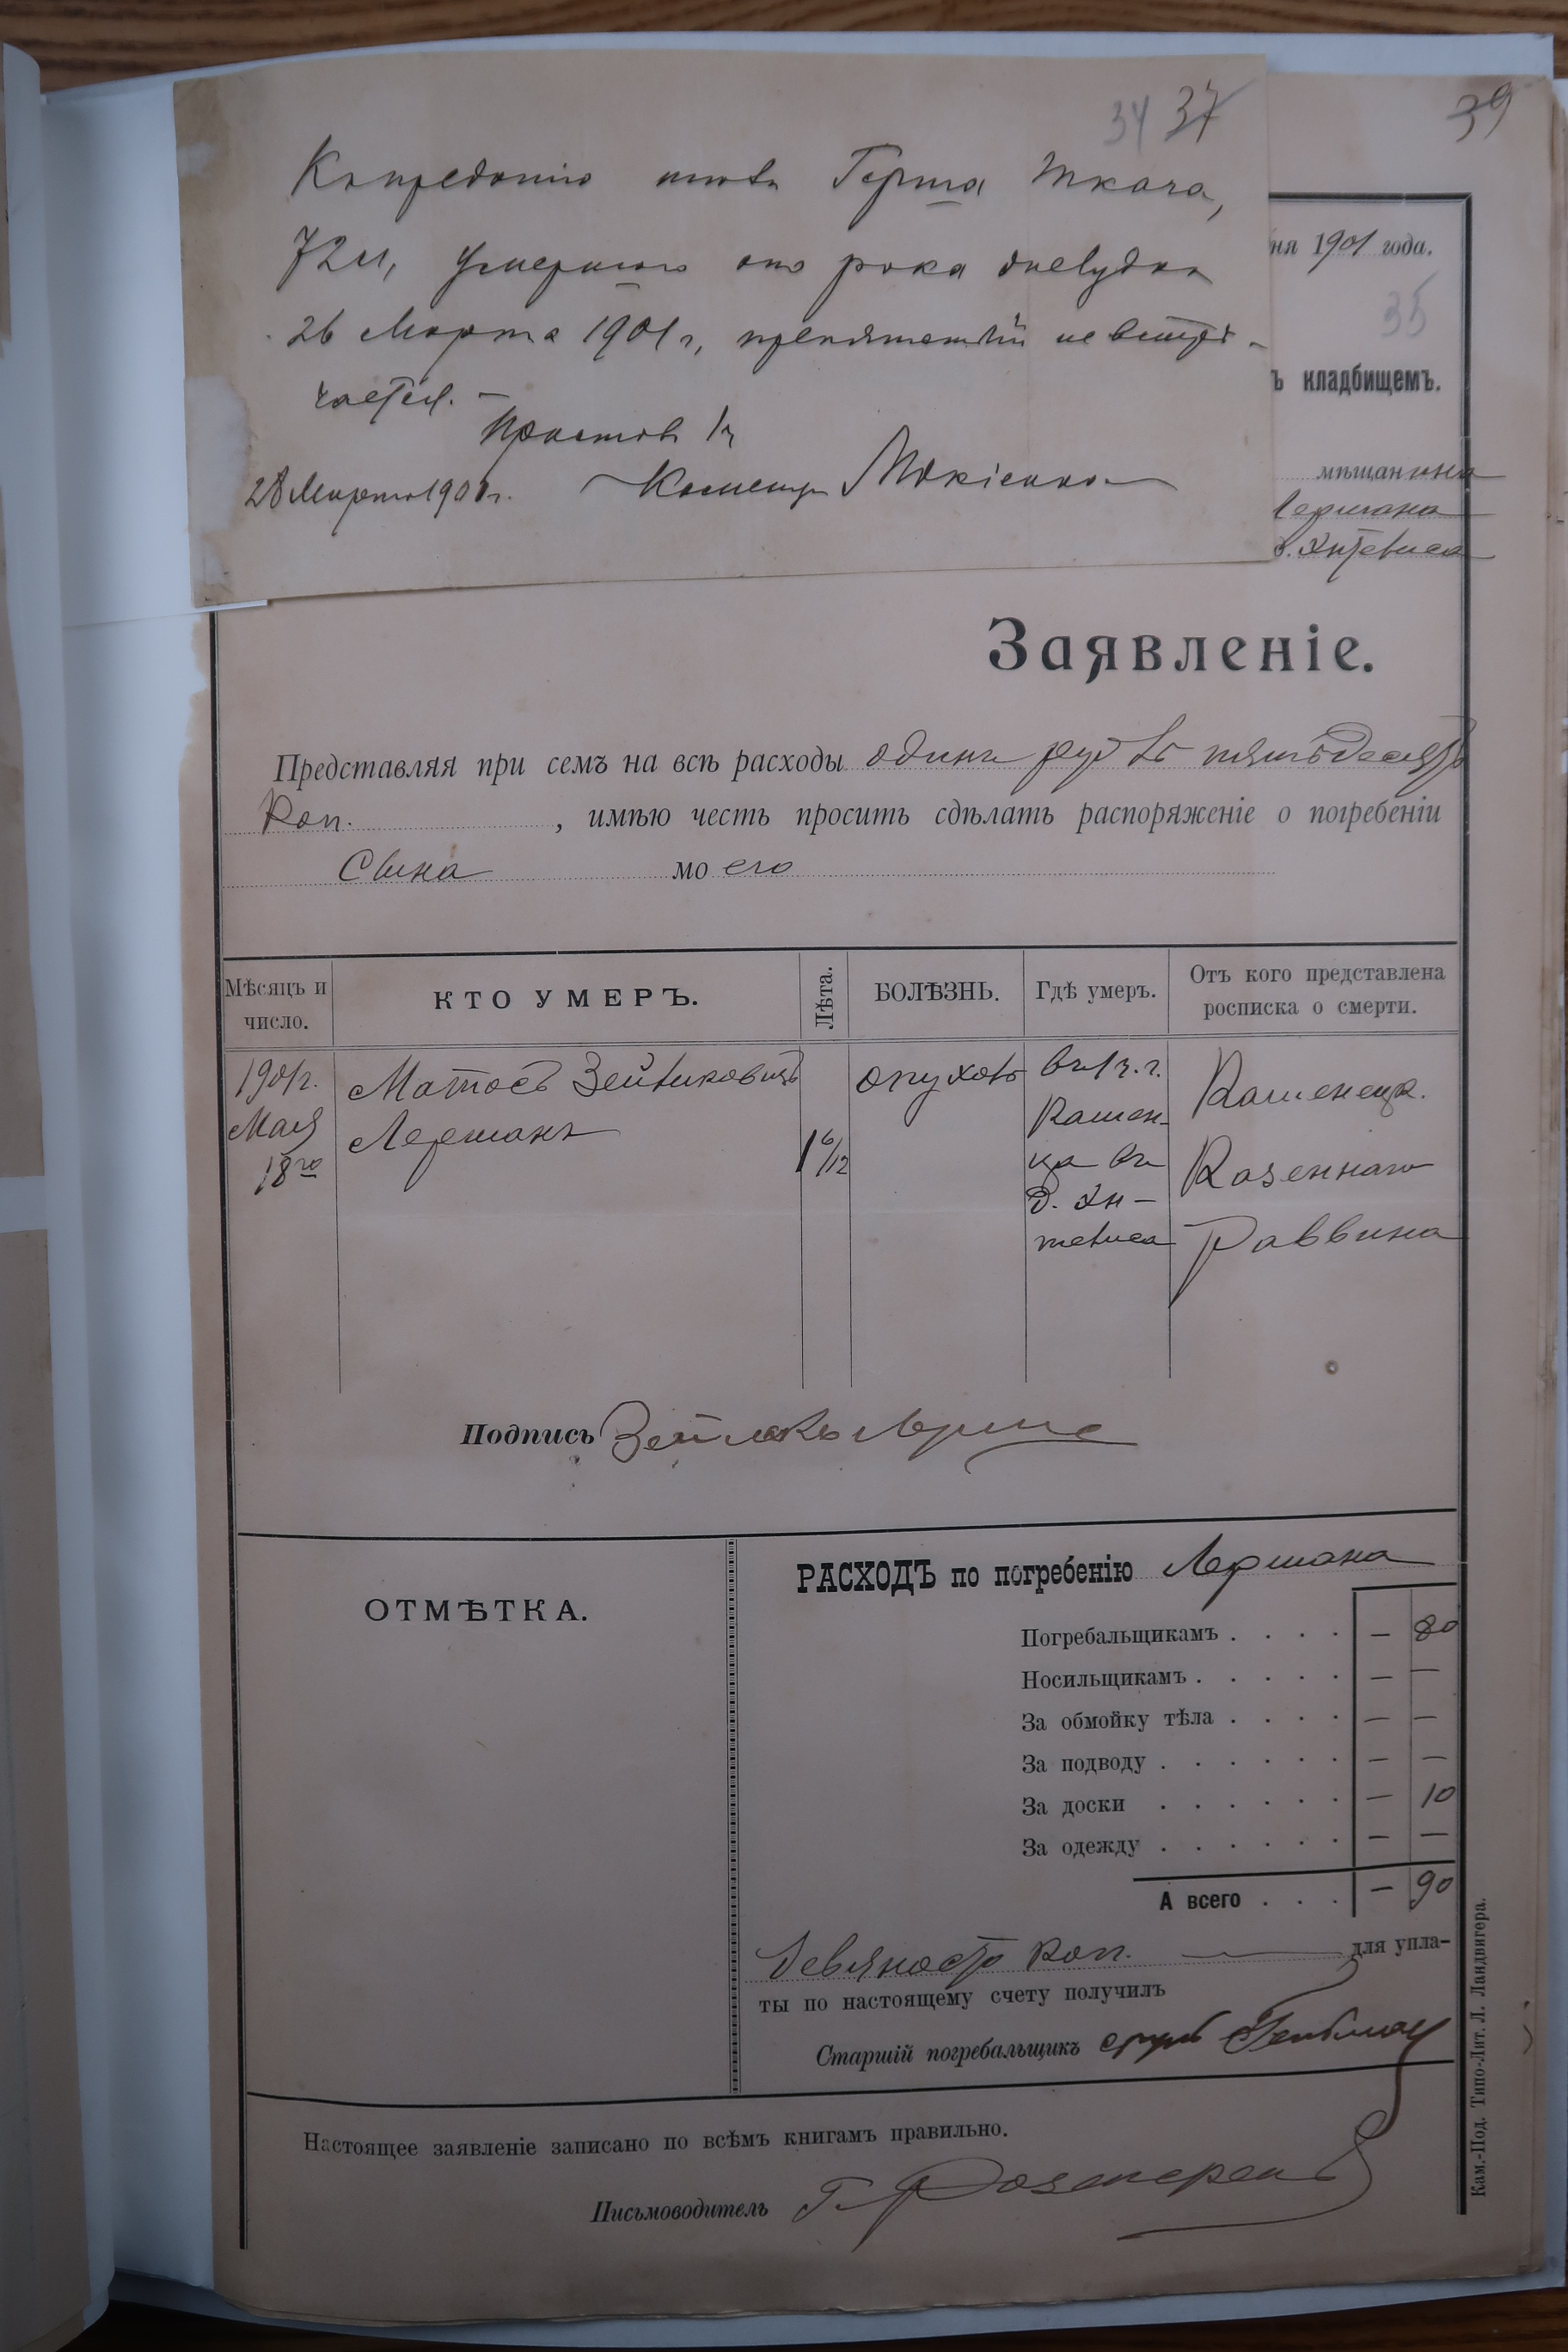 34 37
39
К преданію землѣ Герша Ткача,
72 л, умершаго отъ рака желудка
26 Марта 1901 г, препятствій не встрѣ-
чается. -
Приставъ 1 ч
28 Марта 1901 г. Каменца Мокіенко
ня 1901 года.
35
ъ кладбищемъ.
мѣщанина
Лермана
д.
Заявленіе.
Представляя при семъ на всѣ расходы одинъ руб пятьдесятъ
коп. , имѣю честь просить сдѣлать распоряженіе о погребеніи
Сына моего
Мѣсяцъ и число.
КТО УМЕРЪ.
Лѣта.
БОЛѢЗНЬ.
Гдѣ умеръ.
Отъ кого представлена росписка о смерти.
1901 г.
Мая
18го
Матосъ Зейликовичъ
Лерманъ
1 6/12
опухоль
въ 1 ч. г.
Камен-
ца въ
д.
Каменецк.
Казеннаго
Раввина
Подпись Зейликъ Лерма
ОТМѢТКА.
РАСХОДЪ по погребенію Лермана
Погребальщикамъ . . . . — 80
Носильщикамъ . . . . . — —
За обмойку тѣла . . . . — —
За подводу . . . . . . — —
За доски . . . . . . — 10
За одежду . . . . . . — —
А всего . . . — 90
Девяносто коп. для упла-
ты по настоящему счету получилъ
Старшій погребальщикъ
Настоящее заявленіе записано по всѣмъ книгамъ правильно.
Письмоводитель Г.
Кам.-Под. Типо-Лит. Л. Ландвигера.